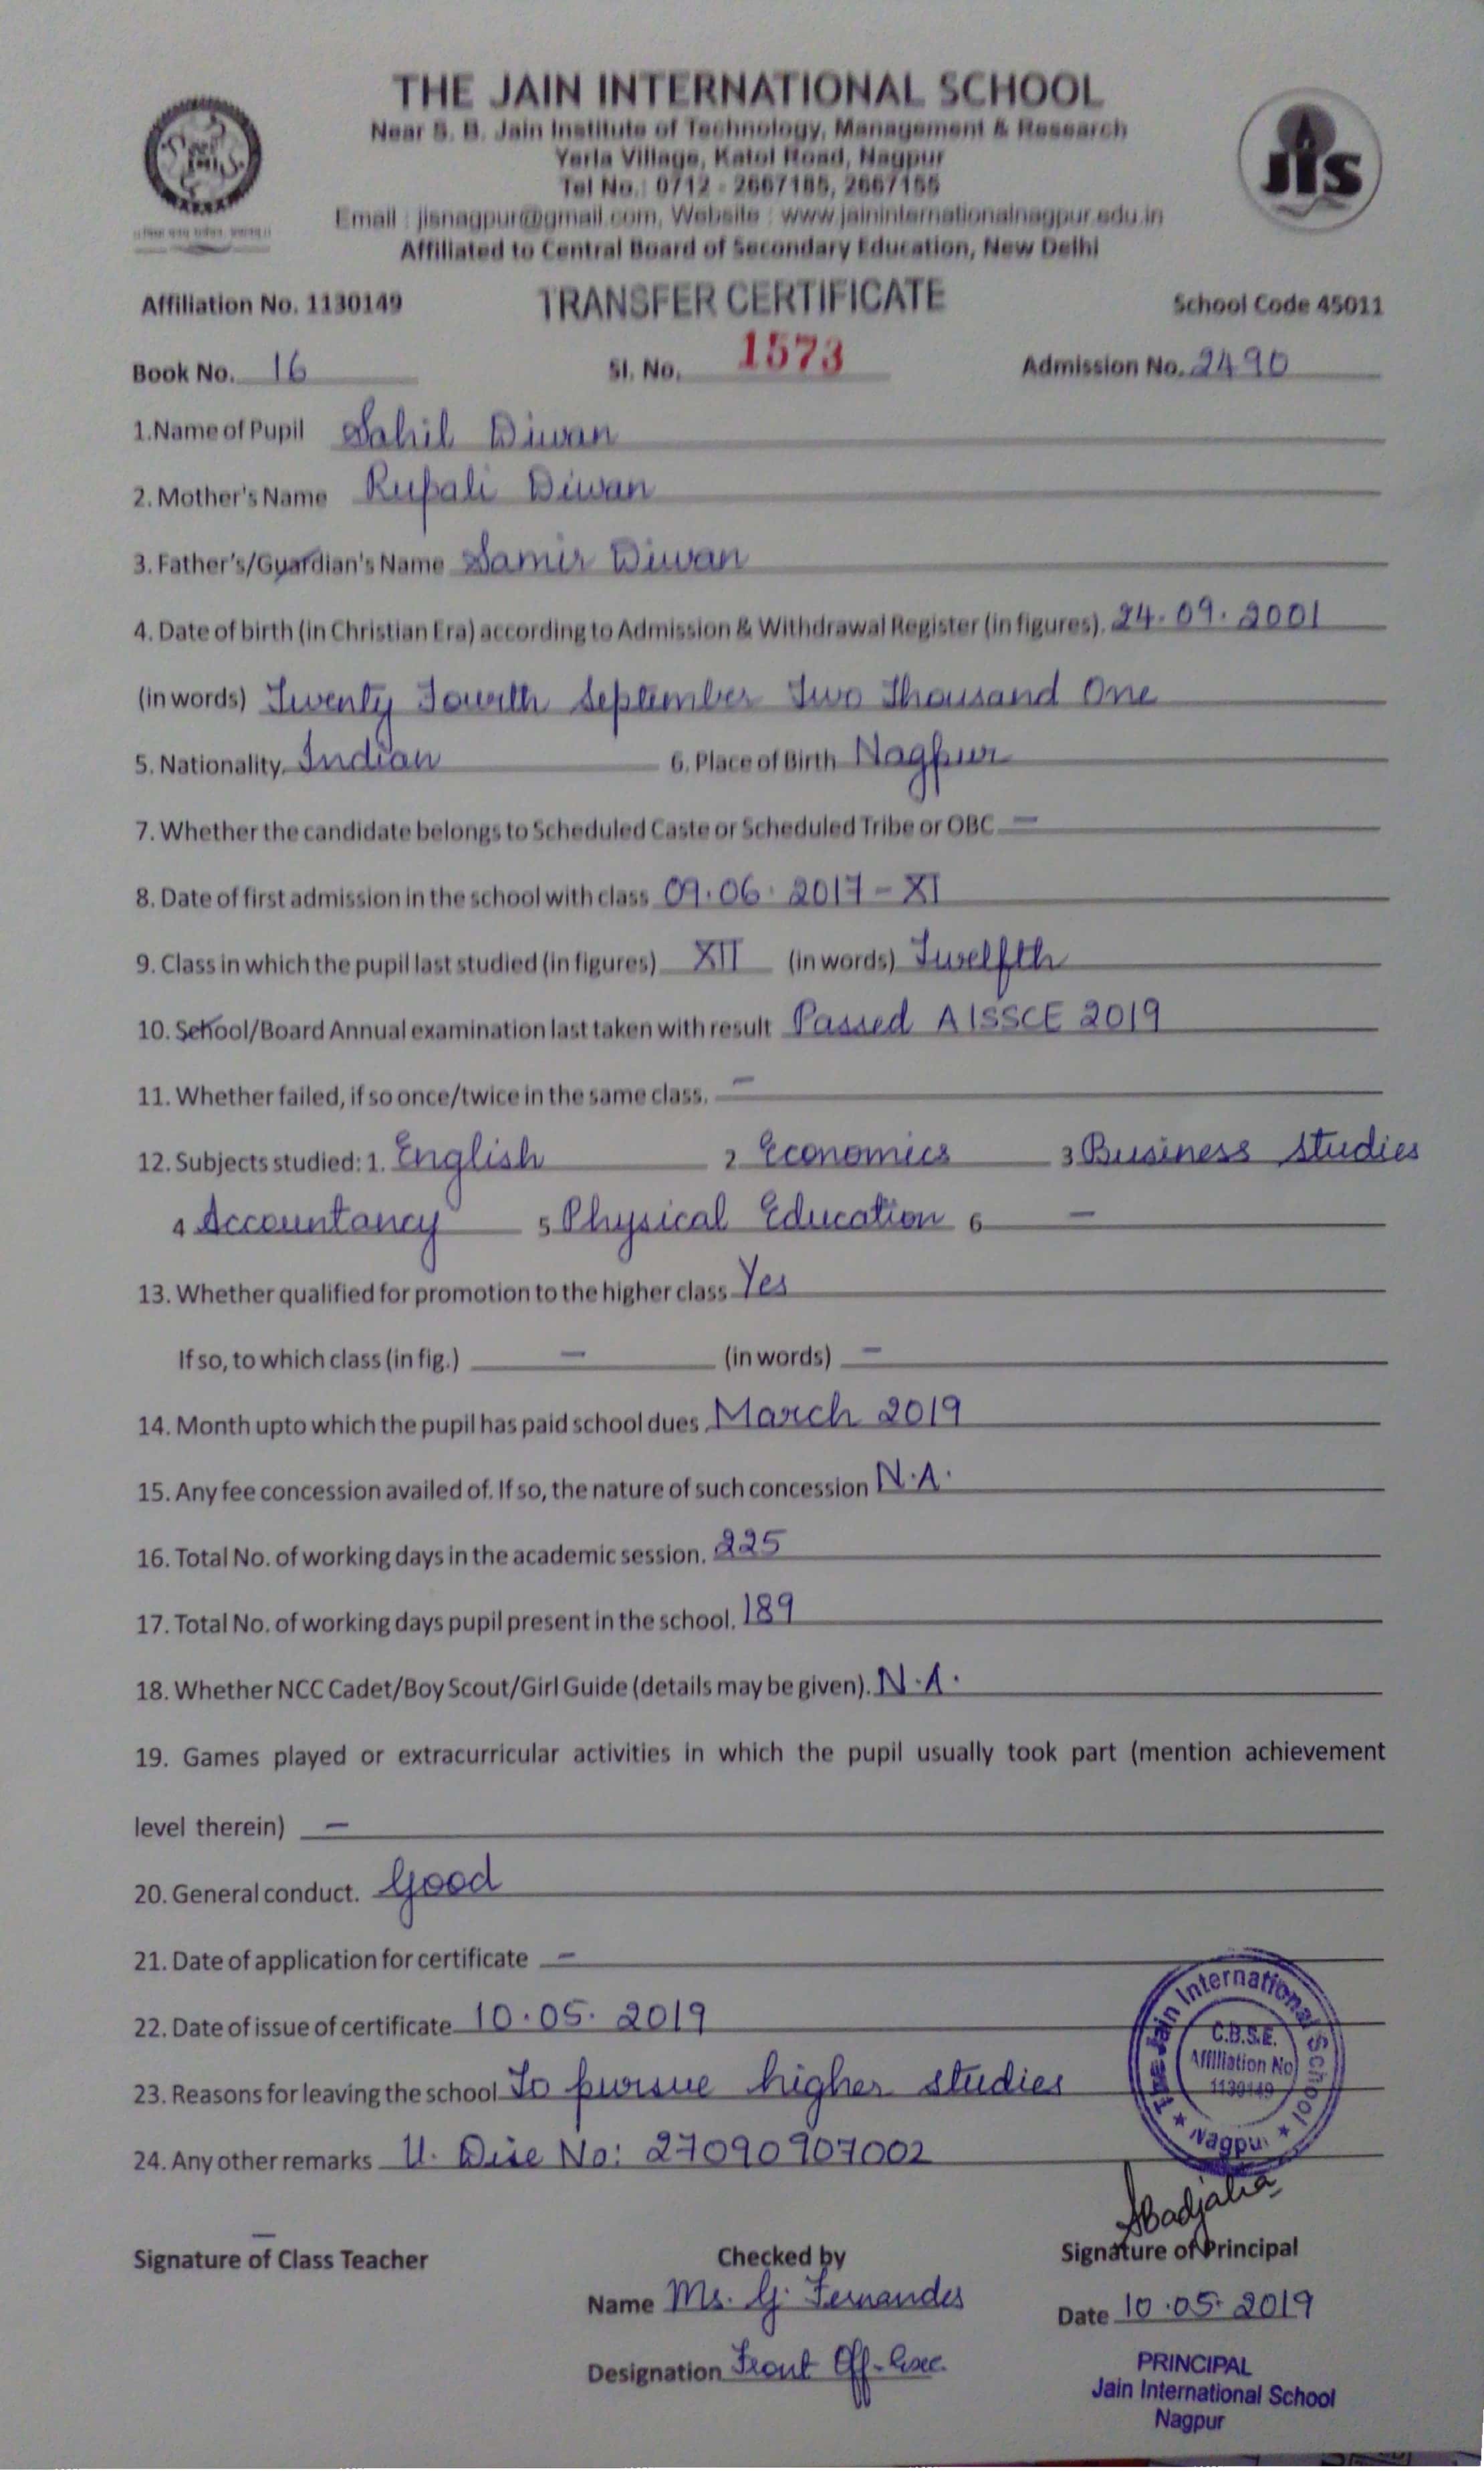 THE JAIN INTERNATIONAL SCHOOL
Near S. B. Jain Institute of Technology, Management & Research
Yerla Village, Katol Road, Nagpur
Tel No. : 0712 - 2667185, 2667155
Email : jisnagpur@gmail.com, Website : www.jaininternationalnagpur.edu.in
Affiliated to Central Board of Secondary Education, New Delhi
JIS
Affiliation No. 1130149 TRANSFER CERTIFICATE School Code 45011
Book No. 16 Sl. No. 1573 Admission No. 2490
1.Name of Pupil Sahil Diwan
2. Mother's Name Rupali Diwan
3. Father's/Guardian's Name Samir Diwan
4. Date of birth (in Christian Era) according to Admission & Withdrawal Register (in figures). 24.09.2001
(in words) Twenty Fourth September Two Thousand One
5. Nationality. Indian 6. Place of Birth Nagpur
7. Whether the candidate belongs to Scheduled Caste or Scheduled Tribe or OBC -
8. Date of first admission in the school with class 09.06.2017 - XI
9. Class in which the pupil last studied (in figures) XII (in words) Twelfth
10. School/Board Annual examination last taken with result Passed AISSCE 2019
11. Whether failed, if so once/twice in the same class. -
12. Subjects studied: 1. English 2 Economics 3 Business Studies
4 Accountancy 5 Physical Education 6 -
13. Whether qualified for promotion to the higher class Yes
If so, to which class (in fig.) - (in words) -
14. Month upto which the pupil has paid school dues March 2019
15. Any fee concession availed of. If so, the nature of such concession N.A.
16. Total No. of working days in the academic session. 225
17. Total No. of working days pupil present in the school. 189
18. Whether NCC Cadet/Boy Scout/Girl Guide (details may be given). N.A.
19. Games played or extracurricular activities in which the pupil usually took part (mention achievement
level therein) -
20. General conduct. Good
21. Date of application for certificate -
22. Date of issue of certificate 10.05.2019
23. Reasons for leaving the school To pursue higher studies
24. Any other remarks U. Dise No: 27090907002
The Jain International School
Nagpur
C.B.S.E.
Affiliation No
1130149
Signature of Class Teacher Checked by Signature of Principal
Name Ms. G. Fernandes Date 10.05.2019
Designation Front Off-Exec.
PRINCIPAL
Jain International School
Nagpur